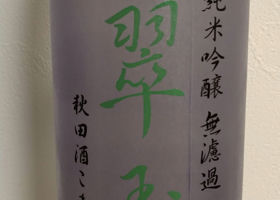 純米吟醸 無濾過
翠玉
秋田酒こま